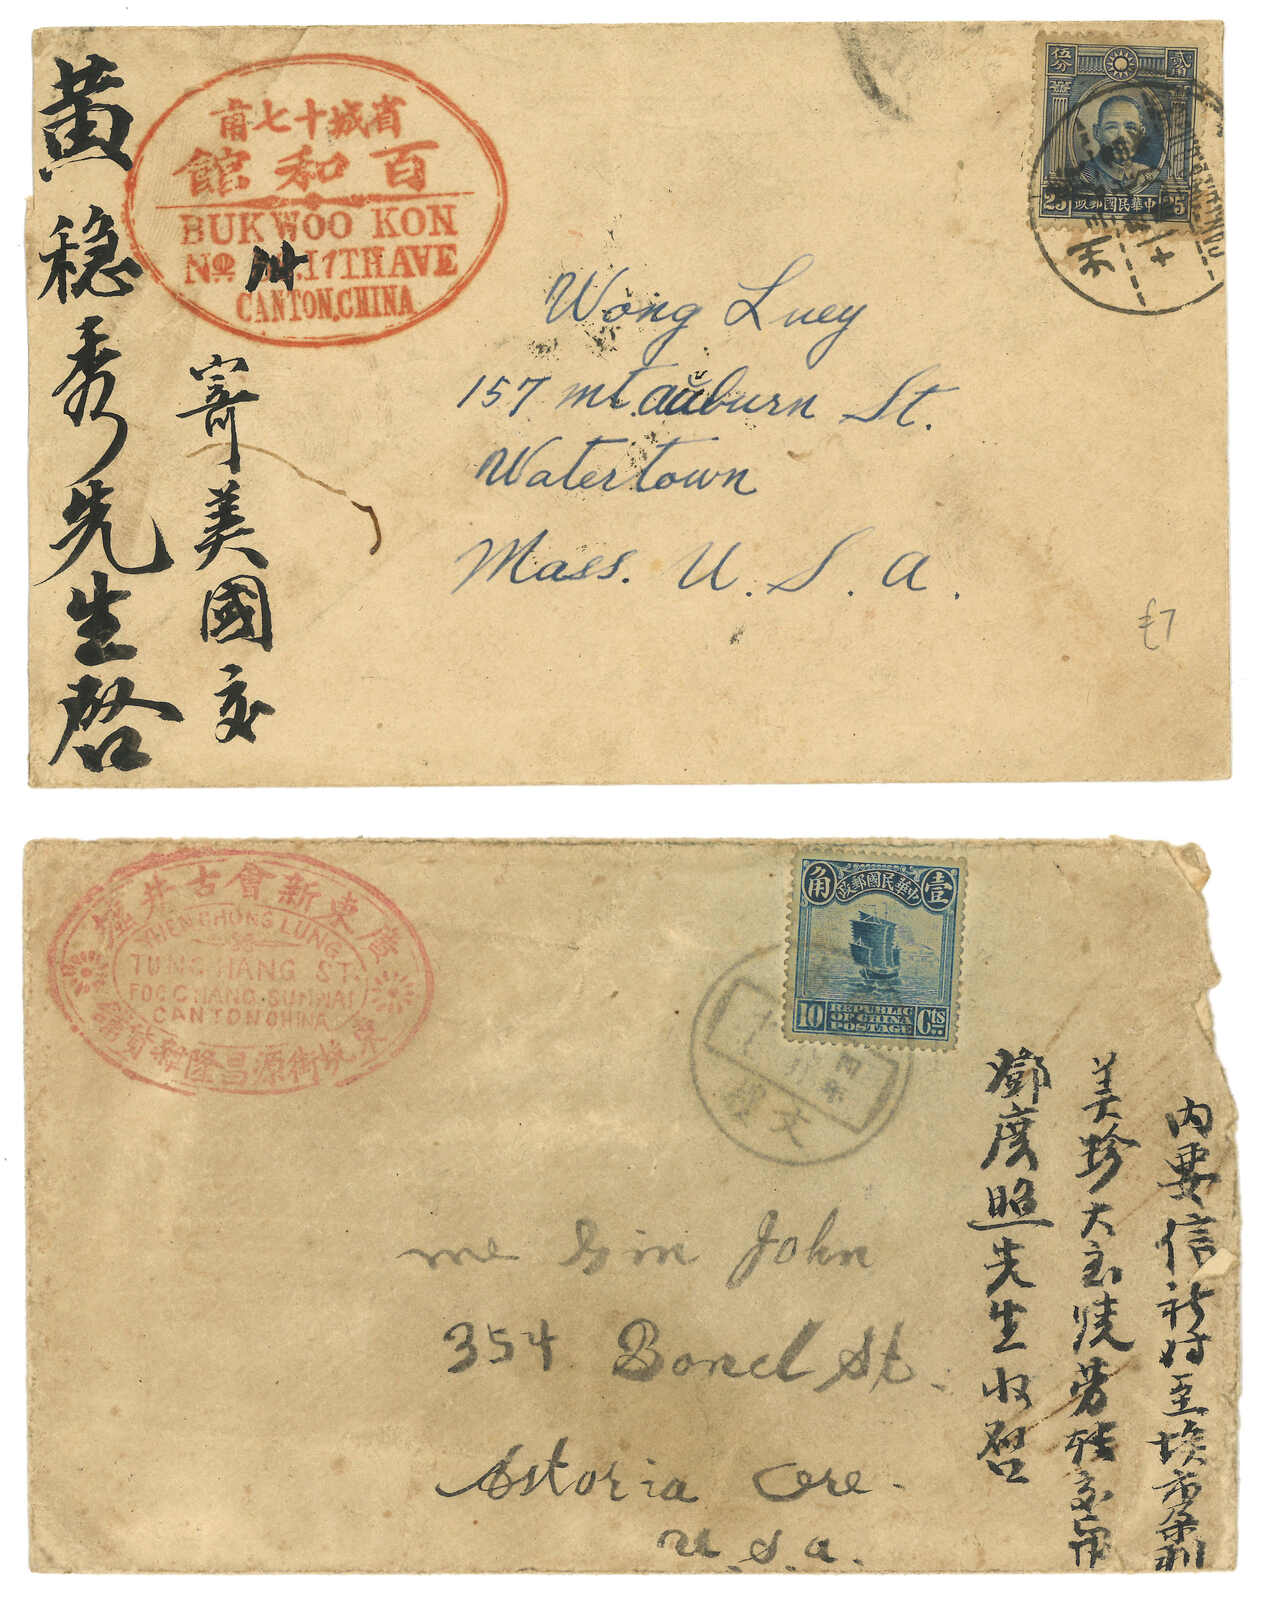 黃穩秀先生啓
寄美國交
省城十七甫
百和館
BUK WOO KON
No 17TH AVE
CANTON, CHINA
伍分
貳角
25 中華民國郵政 25
Wong Luey
157 mt. auburn St.
Watertown
Mass. U. S. A.
£7
廣東新會古井墟
THEN CHONG LUNG
TUNG HANG ST.
CANTON CHINA
街源昌隆
角 中華民國郵政 壹
REPUBLIC
OF CHINA
10 POSTAGE Cts
內要信祈付至埃
美珍大寶號勞轉交
鄧廣照先生收啓
Gin John
354 Bond St.
Astoria Ore.
U. S. a.